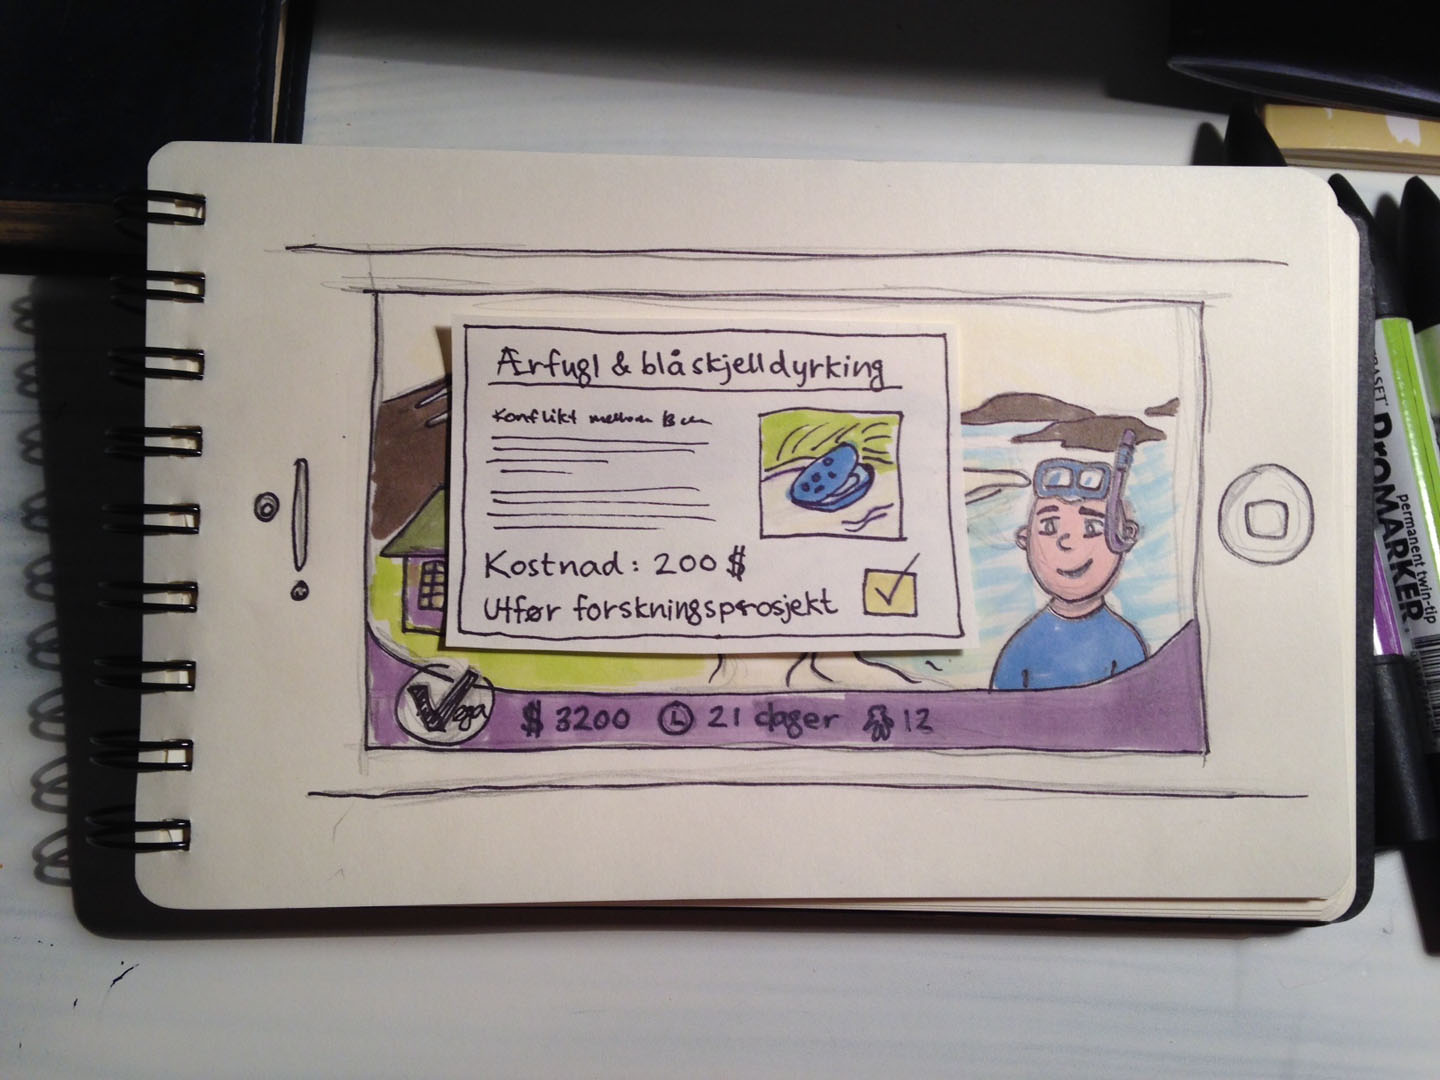 Ærfugl & blåskjelldyrking
Konflikt mellom
Kostnad: 200 $
Utfør forskningsprosjekt
Vega
$ 3200 21 dager 12
PROMARKER
permanent twin-tip